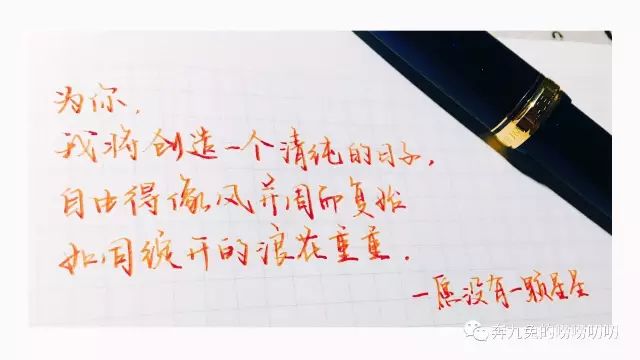 为你，
我将创造一个清纯的日子，
自由得像风并周而复始
如同绽开的浪花重重．
一愿没有一颗星星
奔九兔的吩吩叨叨